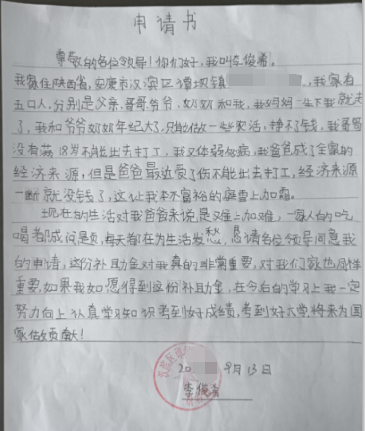 申请书
尊敬的各位领导！你们好，我叫李俊希。
我家住陕西省，安康市汉滨区谭坝镇，我家有
五口人，分别是父亲、哥哥爷爷、奶奶和我，我妈妈一生下我就走
了，我和爷爷奶奶年纪大了，只能做一些农活，挣不了钱，我哥哥
没有满18岁不能出去打工，我又体弱多病，我爸爸成了全家的
经济来源，但是爸爸最近受了伤不能出去打工，经济来源
一断就没钱了，这让我本不富裕的家雪上加霜。
现在的生活对我爸爸来说是难上加难，一家人的吃
喝都成问题，每天都在为生活发愁，恳请各位领导同意我
的申请，这份补助金对我真的非常重要，对我们家也同样
重要，如果我如愿得到这份补助金，在今后的学习上我一定
努力向上认真学习知识考到好成绩，考到好大学，将来为国
家做贡献！
20 9月13日
李俊希